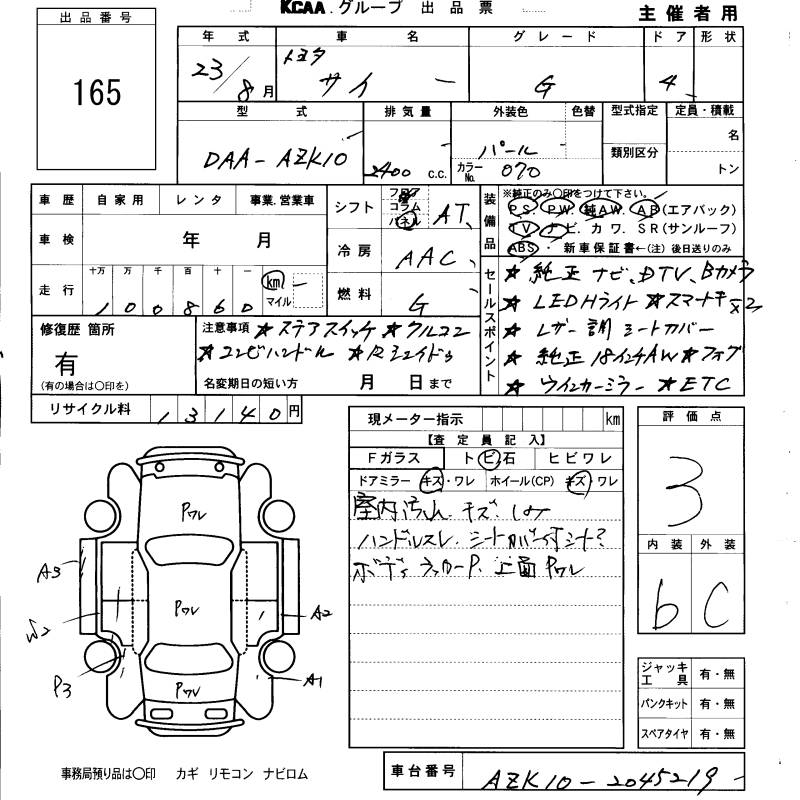 KCAA.グループ 出品票
主催者用
出品番号
165
年式 車名 グレード ドア 形状
23/8月 トヨタ サイ G 4
型式 排気量 外装色 色替 型式指定 定員・積載
DAA-AZK10 2400 c.c. パール
カラーNo. 070 類別区分 名 トン
車歴 自家用 レンタ 事業.営業車
車検 年 月
走行 十万 万 千 百 十 一
100860 km マイル
シフト フロア コラム パネル AT
冷房 AAC
燃料 G
装備品 ※純正のみ〇印をつけて下さい。
PS. PW. 純AW. AB(エアバック)
TV ナビ. カワ. SR(サンルーフ)
ABS. 新車保証書←(注)後日送りのみ
セールスポイント
★純正ナビ、DTV、Bカメラ
★LEDHライト ★スマートキーx2
★レザー調シートカバー
★純正18インチAW★フォグ
★ウインカーミラー ★ETC
修復歴 箇所
有
(有の場合は〇印を)
注意事項 ★ステアスイッチ ★クルコン
★コンビハンドル
名変期日の短い方 月 日まで
リサイクル料 13140円
現メーター指示 km
【査定員記入】
Fガラス トビ石 ヒビワレ
ドアミラー キズ・ワレ ホイール(CP) キズ・ワレ
室内汚れ.キズ.しみ
ハンドルスレ.シートカバー付シート?
ボディ ラッカーP. 上面Pワレ
評価点
3
内装 外装
b C
ジャッキ工具 有・無
パンクキット 有・無
スペアタイヤ 有・無
Pワレ
A3
Pワレ
A2
W2
P3
Pワレ
A1
事務局預り品は〇印 カギ リモコン ナビロム
車台番号 AZK10-2045219